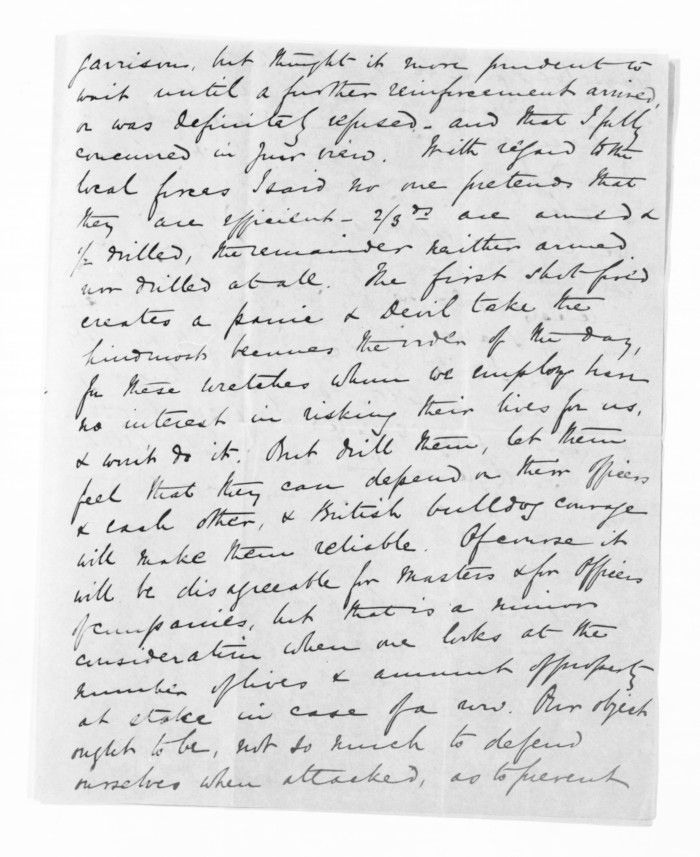 garrisons, but thought it more prudent to
wait until a further reinforcement arrived,
or was definitely refused - and that I fully
concurred in your view. With regard to the
local forces I said no one pretends that
they are efficient - 2/3 ds are armed &
1/2 drilled, the remainder neither armed
nor drilled at all. The first shot fired
creates a panic & Devil take the
hindmost becomes the order of the day,
for these wretches whom we employ have
no interest in risking their lives for us,
& won't do it. But drill them, let them
feel that they can depend on their officers
& each other, & British bulldog courage
will make them reliable. Of course it
will be disagreeable for Masters & for Officers
of companies, but that is a minor
consideration when one looks at the
number of lives & amount of property
at stake in case of a row. Our object
ought to be, not so much to defend
ourselves when attacked, as to prevent